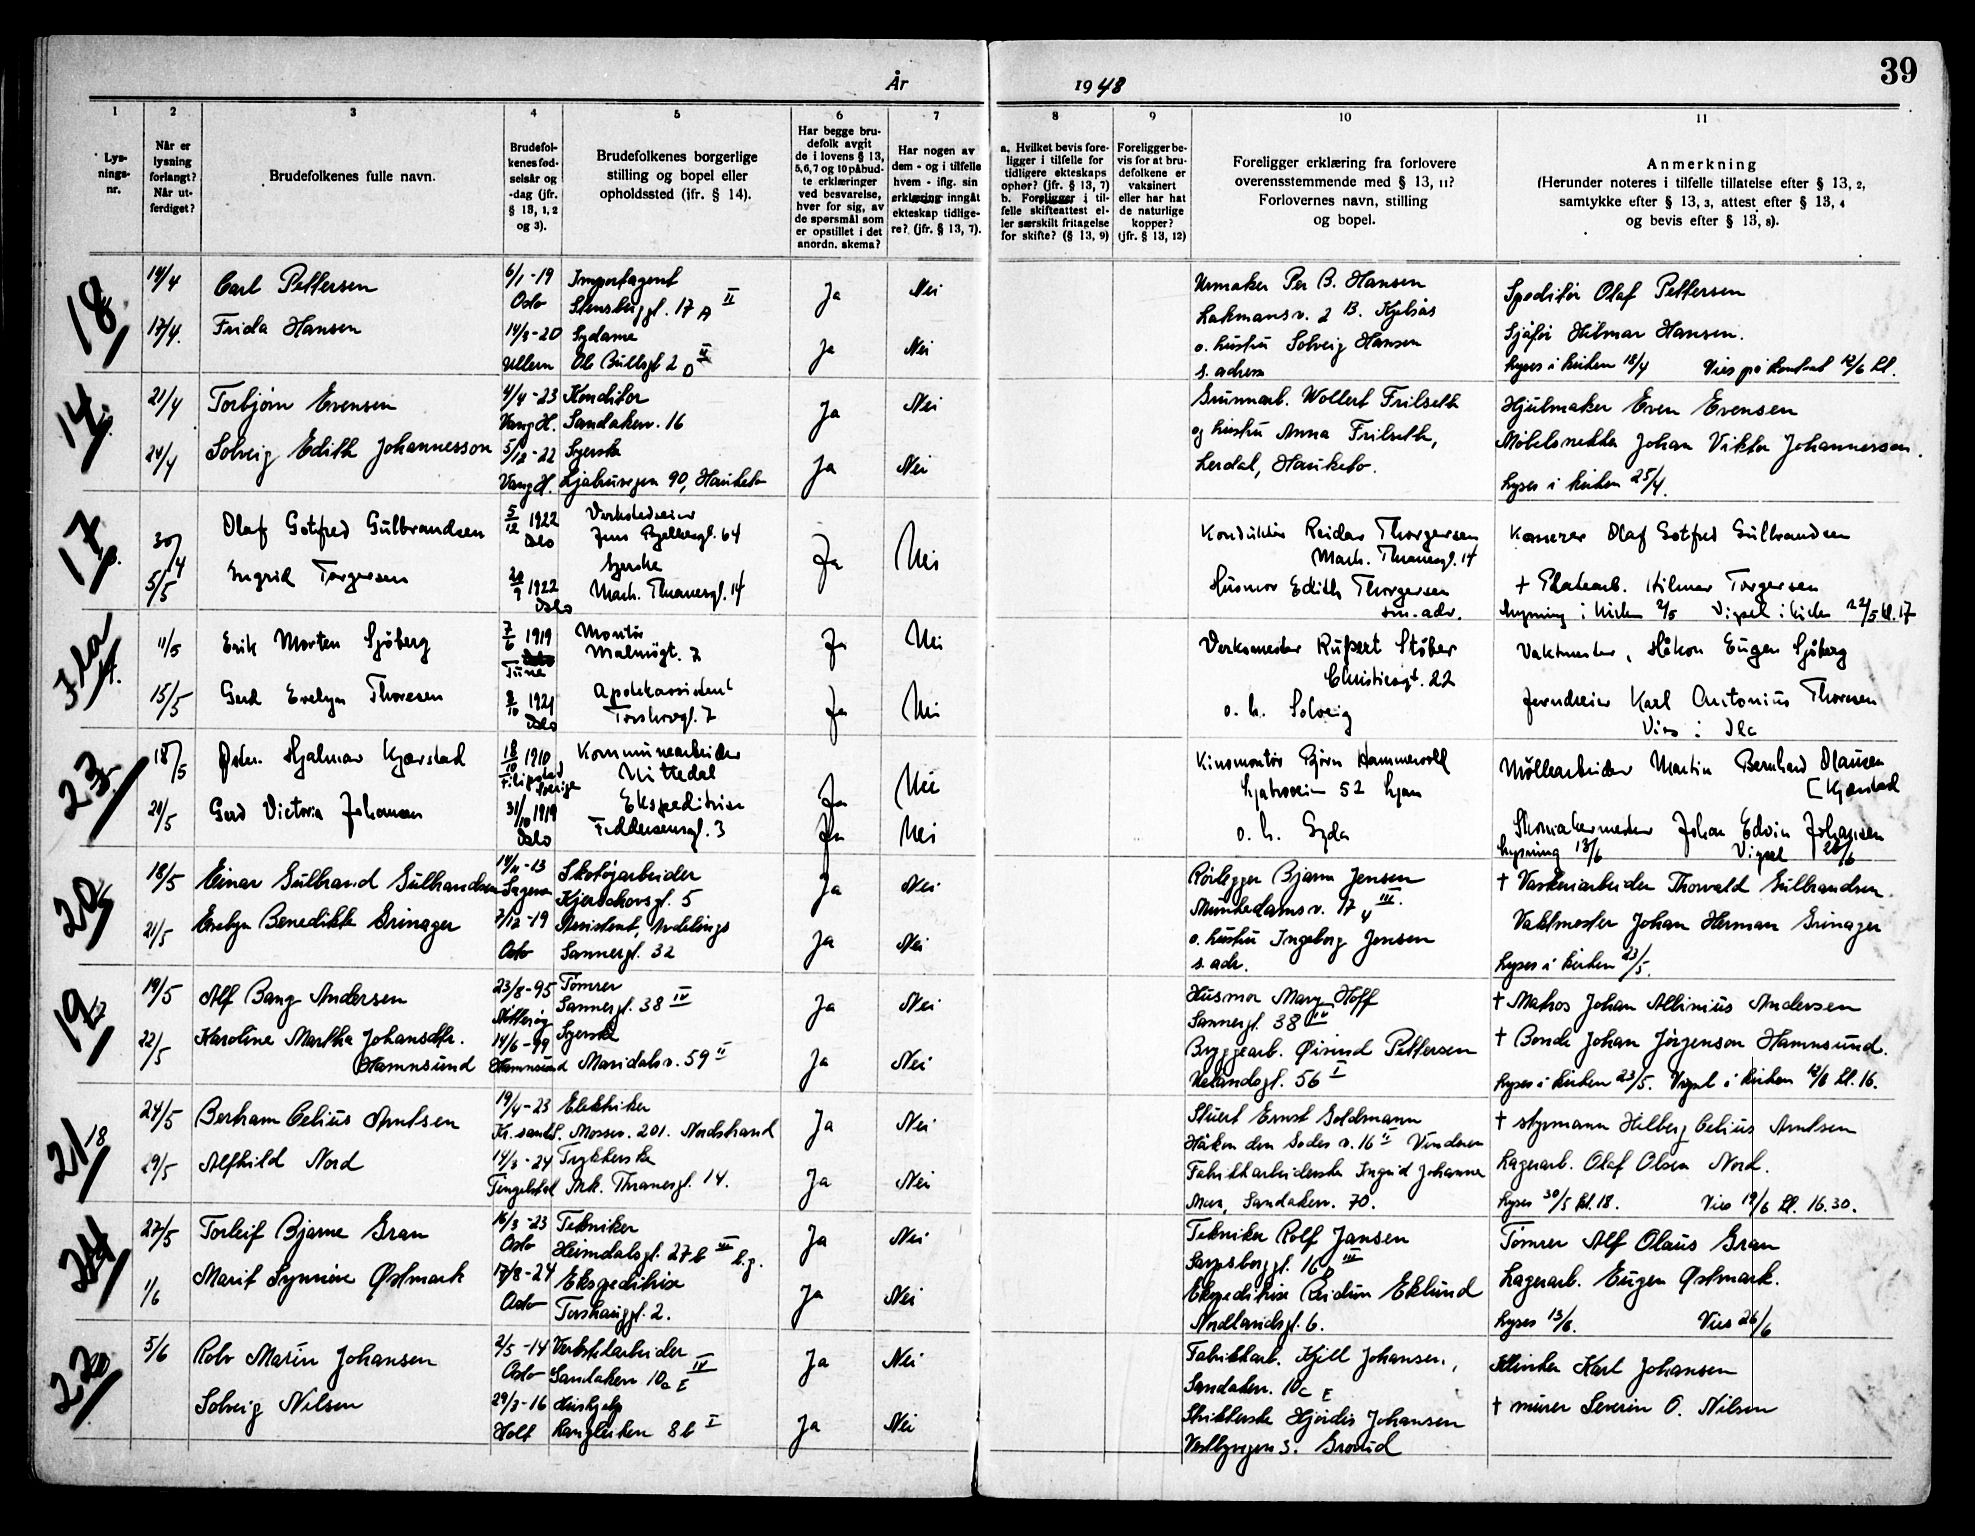 39
År 1948
1 2 3 4 5 6 7 8 9 10 11
Lysningsnr.
Når er lysning forlangt? Når utferdiget?
Brudefolkenes fulle navn.
Brudefolkenes fødselsår og -dag (jfr. § 13, 1, 2 og 3).
Brudefolkenes borgerlige stilling og bopel eller opholdssted (jfr. § 14).
Har begge brudefolk avgit de i lovens § 13, 5, 6, 7 og 10 påbudte erklæringer ved besvarelse, hver for sig, av de spørsmål som er opstillet i det anordn. skema?
Har nogen av dem - og i tilfelle hvem - iflg. sin erklæring inngåt ekteskap tidligere? (jfr. § 13, 7).
a. Hvilket bevis foreligger i tilfelle for tidligere ekteskaps ophør? (jfr. § 13, 7) b. Foreligger i tilfelle skifteattest eller særskilt fritagelse for skifte? (§ 13, 9)
Foreligger bevis for at brudefolkene er vaksinert eller har hat de naturlige kopper? (jfr. § 13, 12)
Foreligger erklæring fra forlovere overensstemmende med § 13, 11? Forlovernes navn, stilling og bopel.
Anmerkning (Herunder noteres i tilfelle tillatelse efter § 13, 2, samtykke efter § 13, 3, attest efter § 13, 4 og bevis efter § 13, 8).
18
14/4 Carl Pettersen 6/1-19 Importagent Ja Nei Urmaker Per B. Hansen Speditør Olaf Pettersen
Oslo Stensberggt. 17 A II Lakmansv. 2 B. Kjelsås
17/4. Frida Hansen 14/3-20 Sydame Ja Nei o. hustru Solveig Hansen Sjåfør Hilmar Hansen.
Ullern Ole Bullsgt 20 II s. adress Lyses i kirken 18/4 Vies på kontoret 12/6 kl.
14
21/4 Torbjørn Evensen 4/4-23 Konditor Ja Nei Grunnarb. Wollert Frilseth Hjulmaker Even Evensen
Vang H. Sandakerv. 16 og hustru Anna Frilseth,
24/4 Solveig Edith Johannesson 5/12-22 Syerske Ja Nei Lerdal, Hauketo. Møbelsnekker Johan Viktor Johannesson.
Vang H. Ljabruvegen 90, Hauketo Lyses i kirken 25/4.
17
30/4 Olaf Gotfred Gulbrandsen 5/12 1922 Verkstedseier Ja Nei Konduktør Reidar Thorgersen Kasserer Olaf Gotfred Gulbrandsen
Oslo Jens Bjelkesgt. 64 Mark. Thranesgt. 14
5/5 Ingrid Torgersen 20/9 1922 Syerske Husmor Edith Thorgersen † Platearb. Hilmar Torgersen
Oslo Mark. Thranesgt. 14 sm. adr. Lysning i kirken 2/5 Vigsel i kirken 22/5 kl. 17
11/5 Erik Morten Sjøberg 7/6 1919 Montør Ja Nei Verksmester Rupert Støber Vaktmester, Håkon Eugen Sjøberg
Tune Malmøgt. 7 Christiesgt. 22
15/5 Gerd Evelyn Thoresen 8/10 1921 Apotekassistent Ja Nei o. h. Solveig Jerndreier Karl Antonius Thoresen
Oslo Torshovgt. 7 Vies i Ila
23
18/5 Hjalmar Kjærstad 18/10 1910 Kommunearbeider Ja Nei Kinomontør Bjørn Hammervoll Møllearbeider Martin Bernhard Olausen
Filipstad Sverige Nittedal 52 Ljan [Kjærstad
21/5 Gerd Victoria Johansen 31/10 1919 Ekspeditrise Ja Nei o. h. Gyda Skomakermester Johan Edvin Johansen
Oslo Feddersensgt. 3 Lysning 13/6 Vigsel 26/6
20
18/5 Einar Gulbrand Gulbrandsen 14/11-13 Skotøyarbeider Ja Nei Rørlegger Bjarne Jensen † Vaskeriarbeider Thorvald Gulbrandsen.
Kjerschovsgt. 5 Munkedamsv. 17 III.
21/5 Evelyn Benedikte Grinager 7/12-19 Assistent, Avdelings Ja Nei o. hustru Ingeborg Jensen Vaktmester Johan Herman Grinager
Oslo Sannergt. 32 s. adr. Lyses i kirken 23/5.
19
19/5 Alf Bang Andersen 23/8-95 Tømrer Ja Nei Husmor Mary Hoff † Matros Johan Albinius Andersen
Nøtterøy Sannergt. 38 IV Sannergt. 38 IV
22/5 Karoline Martha Johansdtr. 14/6-99 Syerske Ja Nei Bryggearb. Øivind Pettersen † Bonde Johan Jørgenson Hamnsund.
Hamnsund Hamnsund Maridalsv. 59 II Uelandsgt. 56 I Lyses i kirken 23/5. Vigsel i kirken 12/6 kl. 16.
21 18
24/5 Bertram Celius Arntsen 19/4-23 Elektriker Ja Nei Stuert Ernst Goldmann † styrmann Hilberg Celius Arntsen
Kr. sand S. Mossev. 201. Nordstrand Håkon den Godes v. 16 II Vinderen
29/5 Alfhild Nord 14/3-24 Trykkerske Ja Nei Fabrikkarbeiderske Ingrid Johanne Lagerarb. Olaf Olsen Nord.
Tingelstad Mrk. Thranesgt. 14. Moen, Sandakerv. 70. Lyses 30/5 kl. 18. Vies 19/6 kl. 16.30.
24
27/5 Torleif Bjarne Gran 16/3-23 Tekniker Ja Nei Tekniker Rolf Jansen Tømrer Alf Olaus Gran
Oslo Heimdalsgt. 27 b III b.g. Sarpsborggt. 16 b III
1/6 Marit Synnøve Østmark 17/8-24 Ekspeditrise Ja Nei Ekspeditrise Reidun Eklund Lagerarb. Eugen Østmark.
Oslo Torshauggt. 2. Nordlandsgt. 6. Lyses 13/6. Vies 26/6
22 20
5/6 Rolv Marin Johansen 2/5-14 Verkstedarbeider Ja Nei Fabrikkarb. Kjell Johansen, Klinker Karl Johansen
Oslo Sandakerv. 10c E IV Sandakerv. 10c E
Solveig Nilsen 29/3-16 Hushjelp Ja Nei Strikkerske Hjørdis Johansen † murer Severin O. Nilsen
Holt Langleiken 8 b I Vestbyvegen 3. Grorud